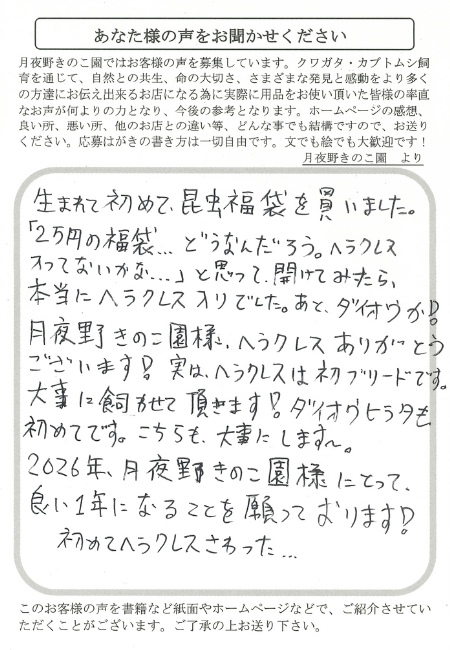 あなた様の声をお聞かせください
月夜野きのこ園ではお客様の声を募集しています。クワガタ・カブトムシ飼
育を通じて、自然との共生、命の大切さ、さまざまな発見と感動をより多く
の方達にお伝え出来るお店になる為に実際に用品をお使い頂いた皆様の率直
なお声が何よりの力となり、今後の参考となります。ホームページの感想、
良い所、悪い所、他のお店との違い等、どんな事でも結構ですので、お送り
ください。応募はがきの書き方は一切自由です。文でも絵でも大歓迎です！
月夜野きのこ園　より
生まれて初めて、昆虫福袋を買いました。
「2万円の福袋…どうなんだろう。ヘラクレス
入ってないかな…」と思って、開けてみたら、
本当にヘラクレス入りでした。あと、ダイオウが!
月夜野きのこ園様、ヘラクレスありがとう
ございます! 実は、ヘラクレスは初ブリードです。
大事に飼わせて頂きます! ダイオウヒラタも
初めてです。こちらも、大事にします〜。
2026年、月夜野きのこ園様にとって、
良い1年になることを願っております!
初めてヘラクレスさわった…
このお客様の声を書籍など紙面やホームページなどで、ご紹介させてい
ただくことがございます。ご了承の上お送り下さい。